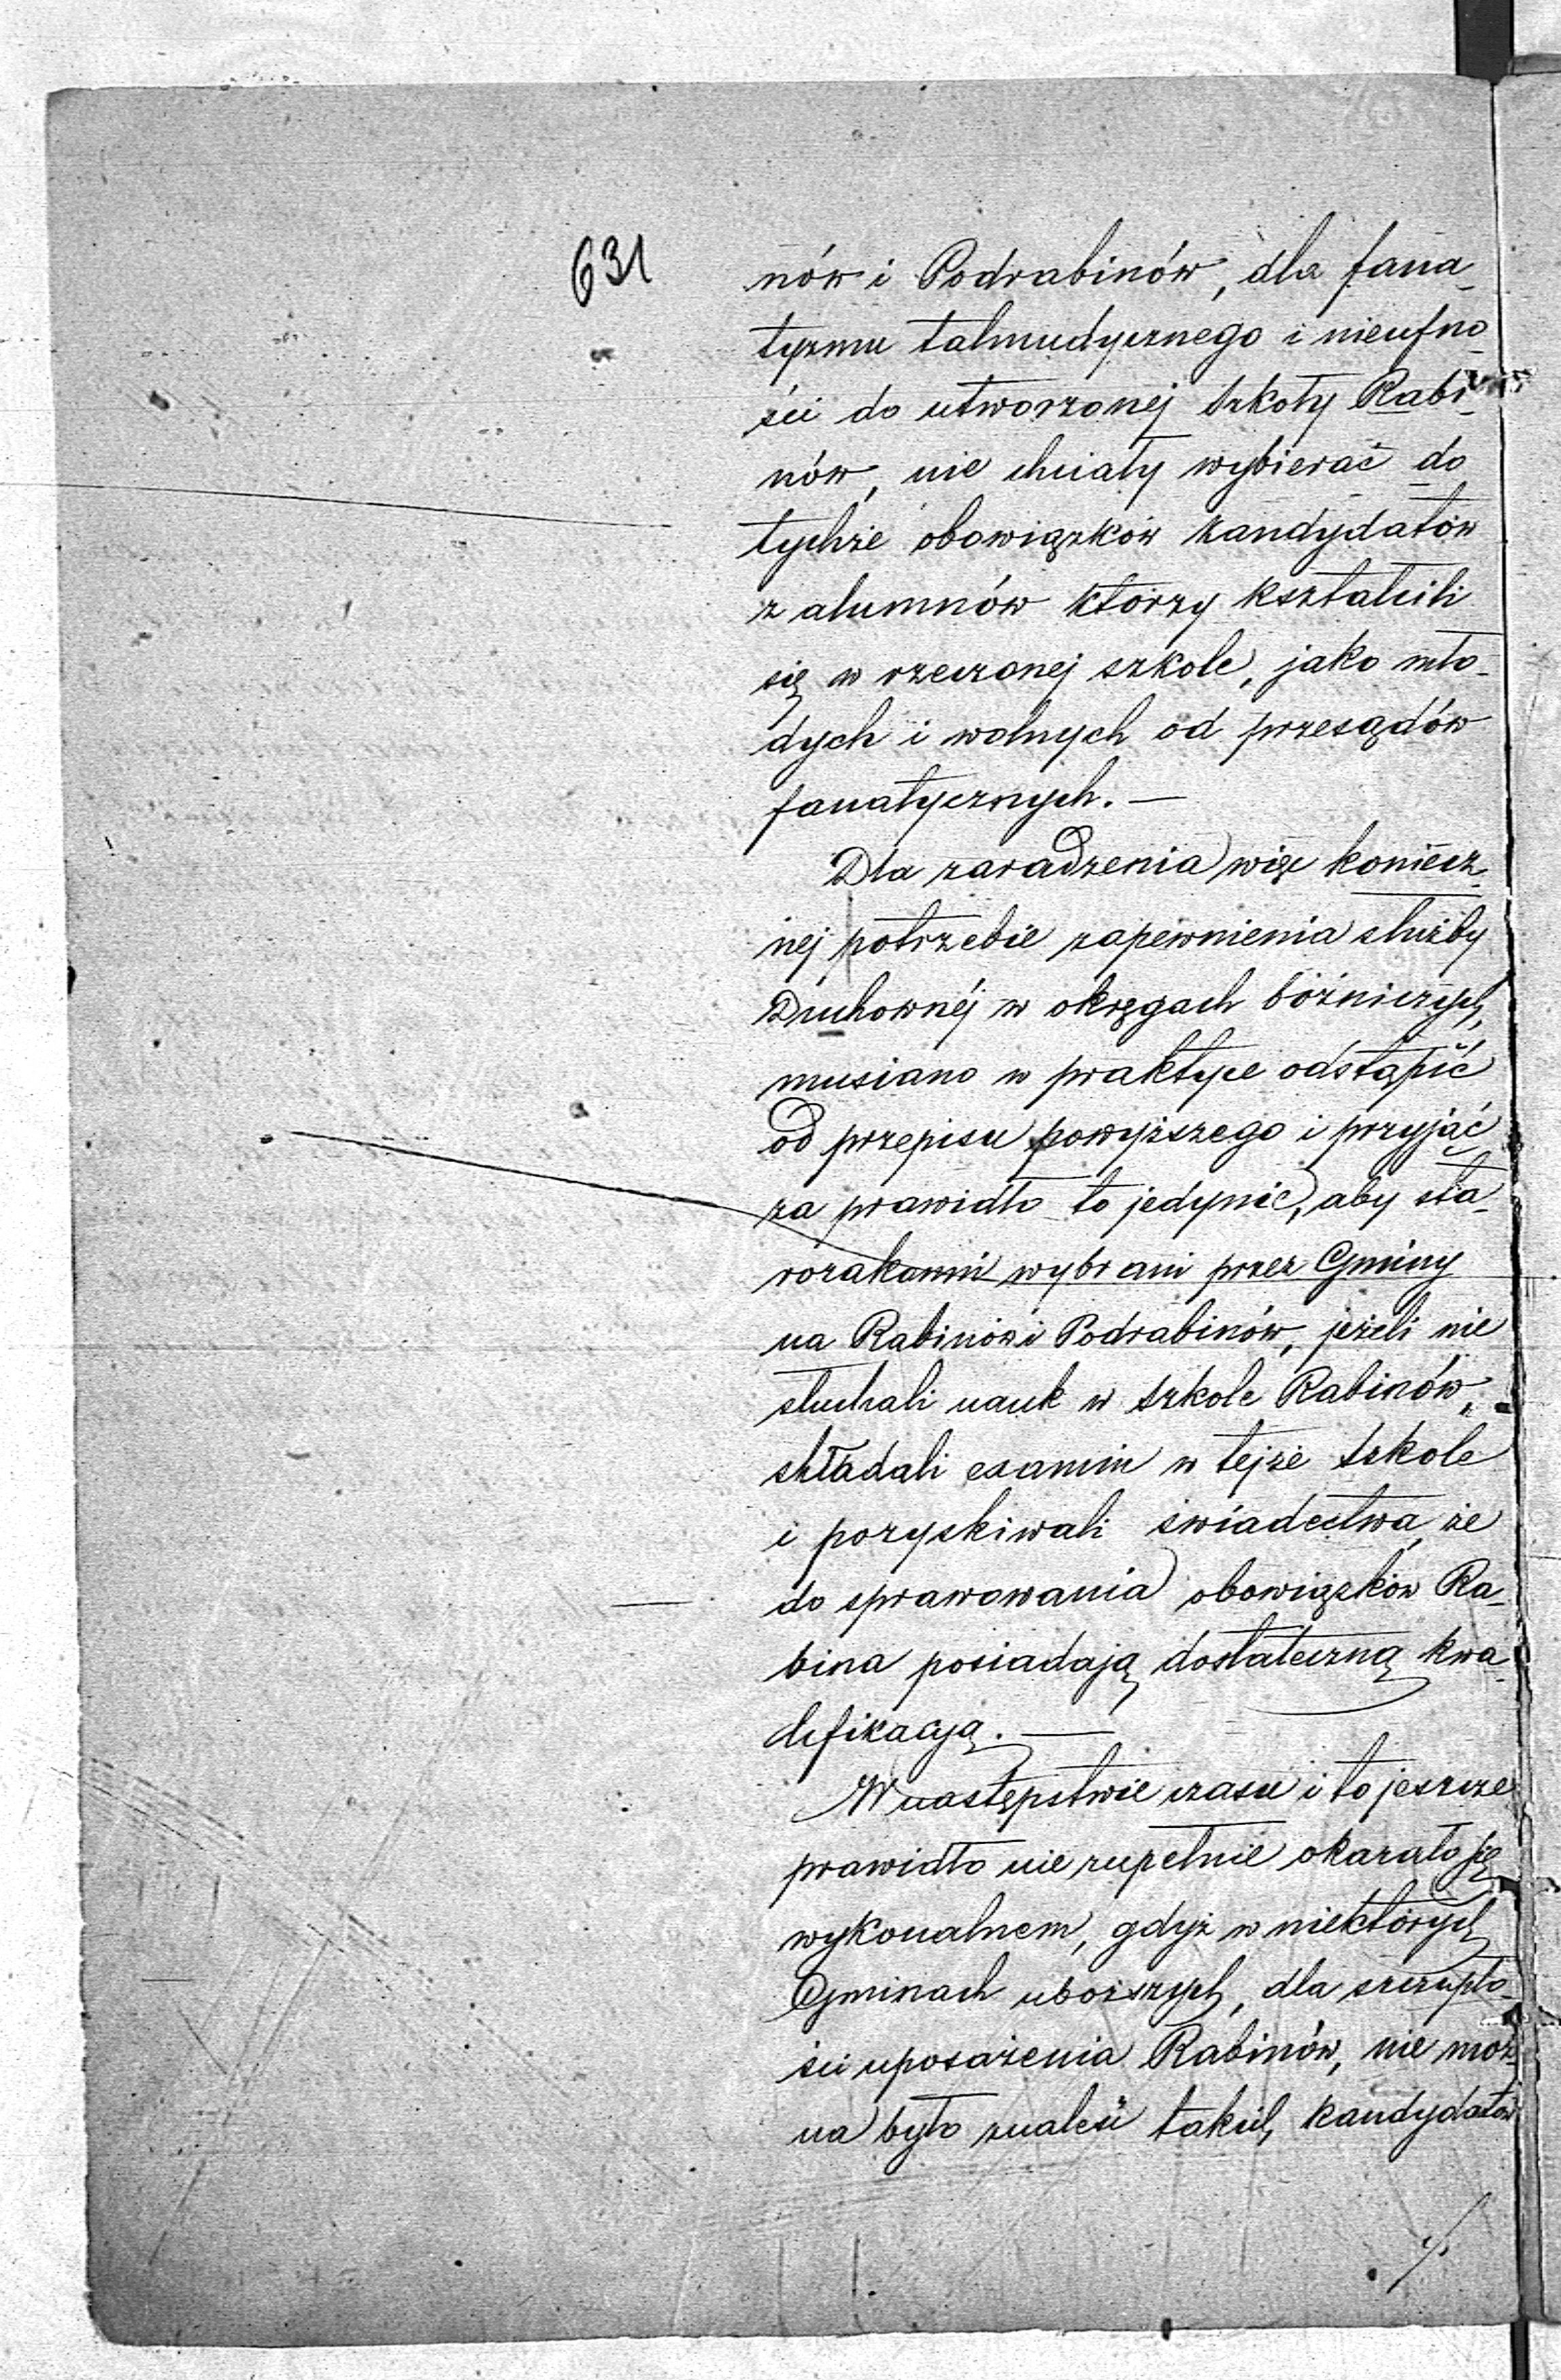 631
nów i Podrabinów, dla fana-
tyzmu talmudycznego i nieufno-
ści do utworzonej Szkoły Rabi-
nów, nie chciały wybierać do
tychże obowiązków kandydatów
z alumnów którzy kształcili
się w rzeczonej szkole, jako mło-
dych i wolnych od przesądów
fanatycznych. —
Dla zaradzenia więc koniecz-
nej potrzebie zapewnienia służby
Duchownéj w okręgach bóźniczych,
musiano w praktyce odstąpić
od przepisu powyższego i przyjąć
za prawidło to jedynie, aby sta-
rozakonni wybrani przez Gminy
na Rabinów i Podrabinów, jeżeli nie
słuchali nauk w Szkole Rabinów,
składali examin w tejże Szkole
i pozyskiwali świadectwa, że
do sprawowania obowiązków Ra-
bina posiadają dostateczną kwa-
lifikacyą. —
W następstwie czasu i to jeszcze
prawidło nie zupełnie okazało się
wykonalnem, gdyż w niektórych
Gminach uboższych, dla szczupło-
ści uposażenia Rabinów, nie moż-
na było znaleść takich kandydatów